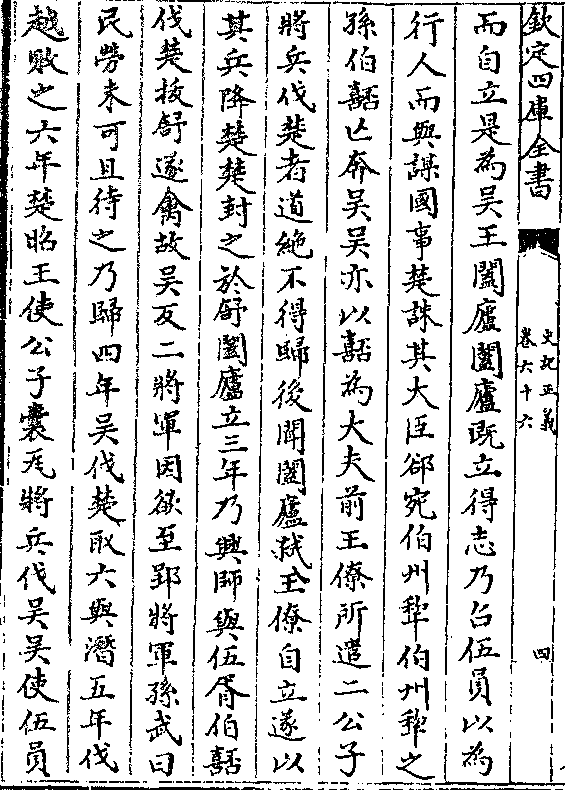 欽定四庫全書
史記正義
卷六十六
四
而自立是為吳王闔廬闔廬既立得志乃召伍員以為
行人而與謀國事楚誅其大臣郤宛伯州犂伯州犂之
孫伯嚭亡奔吳吳亦以嚭為大夫前王僚所遣二公子
將兵伐楚者道絶不得歸後聞闔廬弑王僚自立遂以
其兵降楚楚封之於舒闔廬立三年乃興師與伍胥伯嚭
伐楚拔舒遂禽故吳反二將軍因欲至郢將軍孫武曰
民勞未可且待之乃歸四年吳伐楚取六與潛五年伐
越敗之六年楚昭王使公子囊瓦將兵伐吳吳使伍員